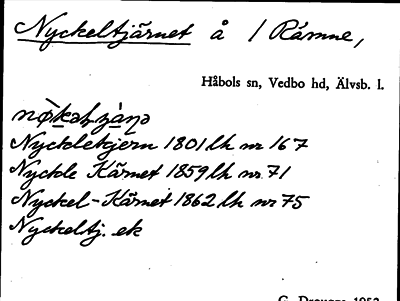 Nyckeltjärnet å / Rämne,
Håbols sn, Vedbo hd, Älvsb. l.
Nycklekjern 1801 lh nr 167
Nyckle Kärnet 1859 lh nr 71
Nyckel-Kärnet 1862 lh nr 75
Nyckeltj. ek